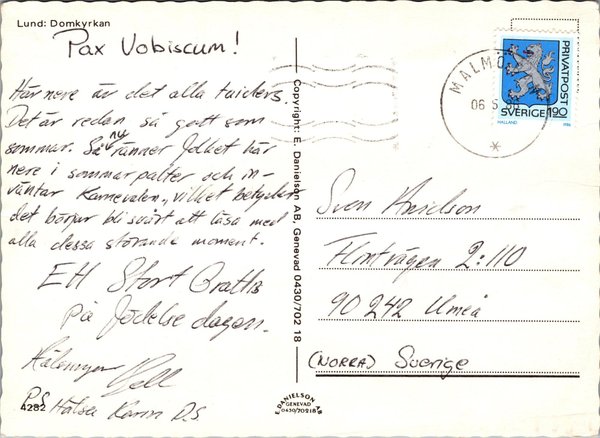 Lund: Domkyrkan
Pax Vobiscum!
Här nere är det alla tiders.
Det är redan så gott som
sommar. Så ny ränner folket här
nere i sommarpalter och in-
väntar Karnevalen, vilket betyder
det börjar bli svårt att läsa med
alla dessa störande moment.
Ett Stort Grattis
på födelsedagen.
Hälsningar
P.S Hälsa Karin D.S
4282
Copyright: E. Danielson AB, Genevad 0430/702 18
E. DANIELSON AB
GENEVAD
0430/70218
MALMÖ
06 5
PRIVATPOST
SVERIGE 1.90
HALLAND
Sven
Flintvägen 2:110
90 242 Umeå
(NORRA) Sverige